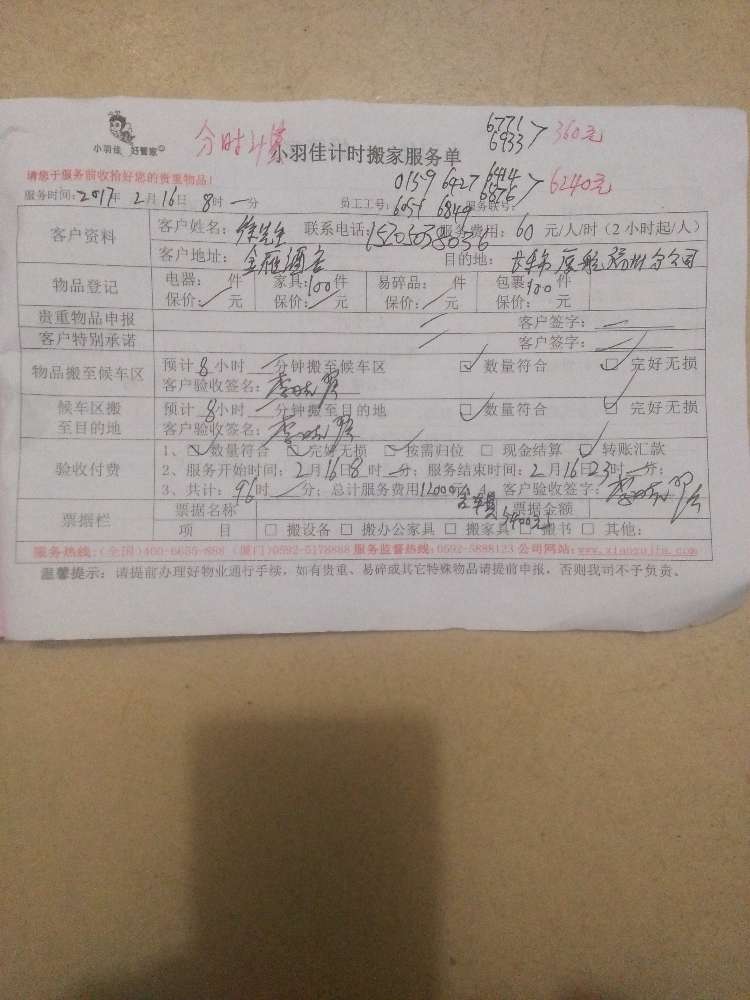 小羽佳 好管家
分时计算
6771
6933 > 360元
小羽佳计时搬家服务单
请您于服务前收拾好您的贵重物品!
0159 6427 6414
6876 > 6240元
服务时间:2017年 2月16日 8时一分 员工工号: 6054 6849 服务联号:
客户资料 客户姓名:徐先生 联系电话:15205038036 服务费用:60 元/人/时(2小时起/人)
客户地址:金雁酒店 目的地:
物品登记 电器: 件 家具:100件 易碎品: 件 包裹:100件
保价: 元 保价: 元 保价: 元 保价: 元
贵重物品申报 客户签字:
客户特别承诺 客户签字:
物品搬至候车区 预计8小时 一分钟搬至候车区 ☑ 数量符合 ☑ 完好无损
客户验收签名:
候车区搬至目的地 预计8小时 一分钟搬至目的地 ☑ 数量符合 ☑ 完好无损
客户验收签名:
验收付费 1、☑ 数量符合 ☑ 完好无损 ☑ 按需归位 □ 现金结算 ☑ 转账汇款
2、服务开始时间:2月16日8时一分;服务结束时间:2月16日23时一分;
3、共计:96时一分;总计服务费用12000元 4、客户验收签字:
票据栏 票据名称 票据金额
项 目 □ 搬设备 □ 搬办公家具 □ 搬家具 □ 搬书 □ 其他:
服务热线:(全国)400-6655-888 (厦门)0592-5178888 服务监督热线:0592-5888123 公司网站:www.xiaoyujia.com
温馨提示:请提前办理好物业通行手续,如有贵重、易碎或其它特殊物品请提前申报,否则我司不予负责。